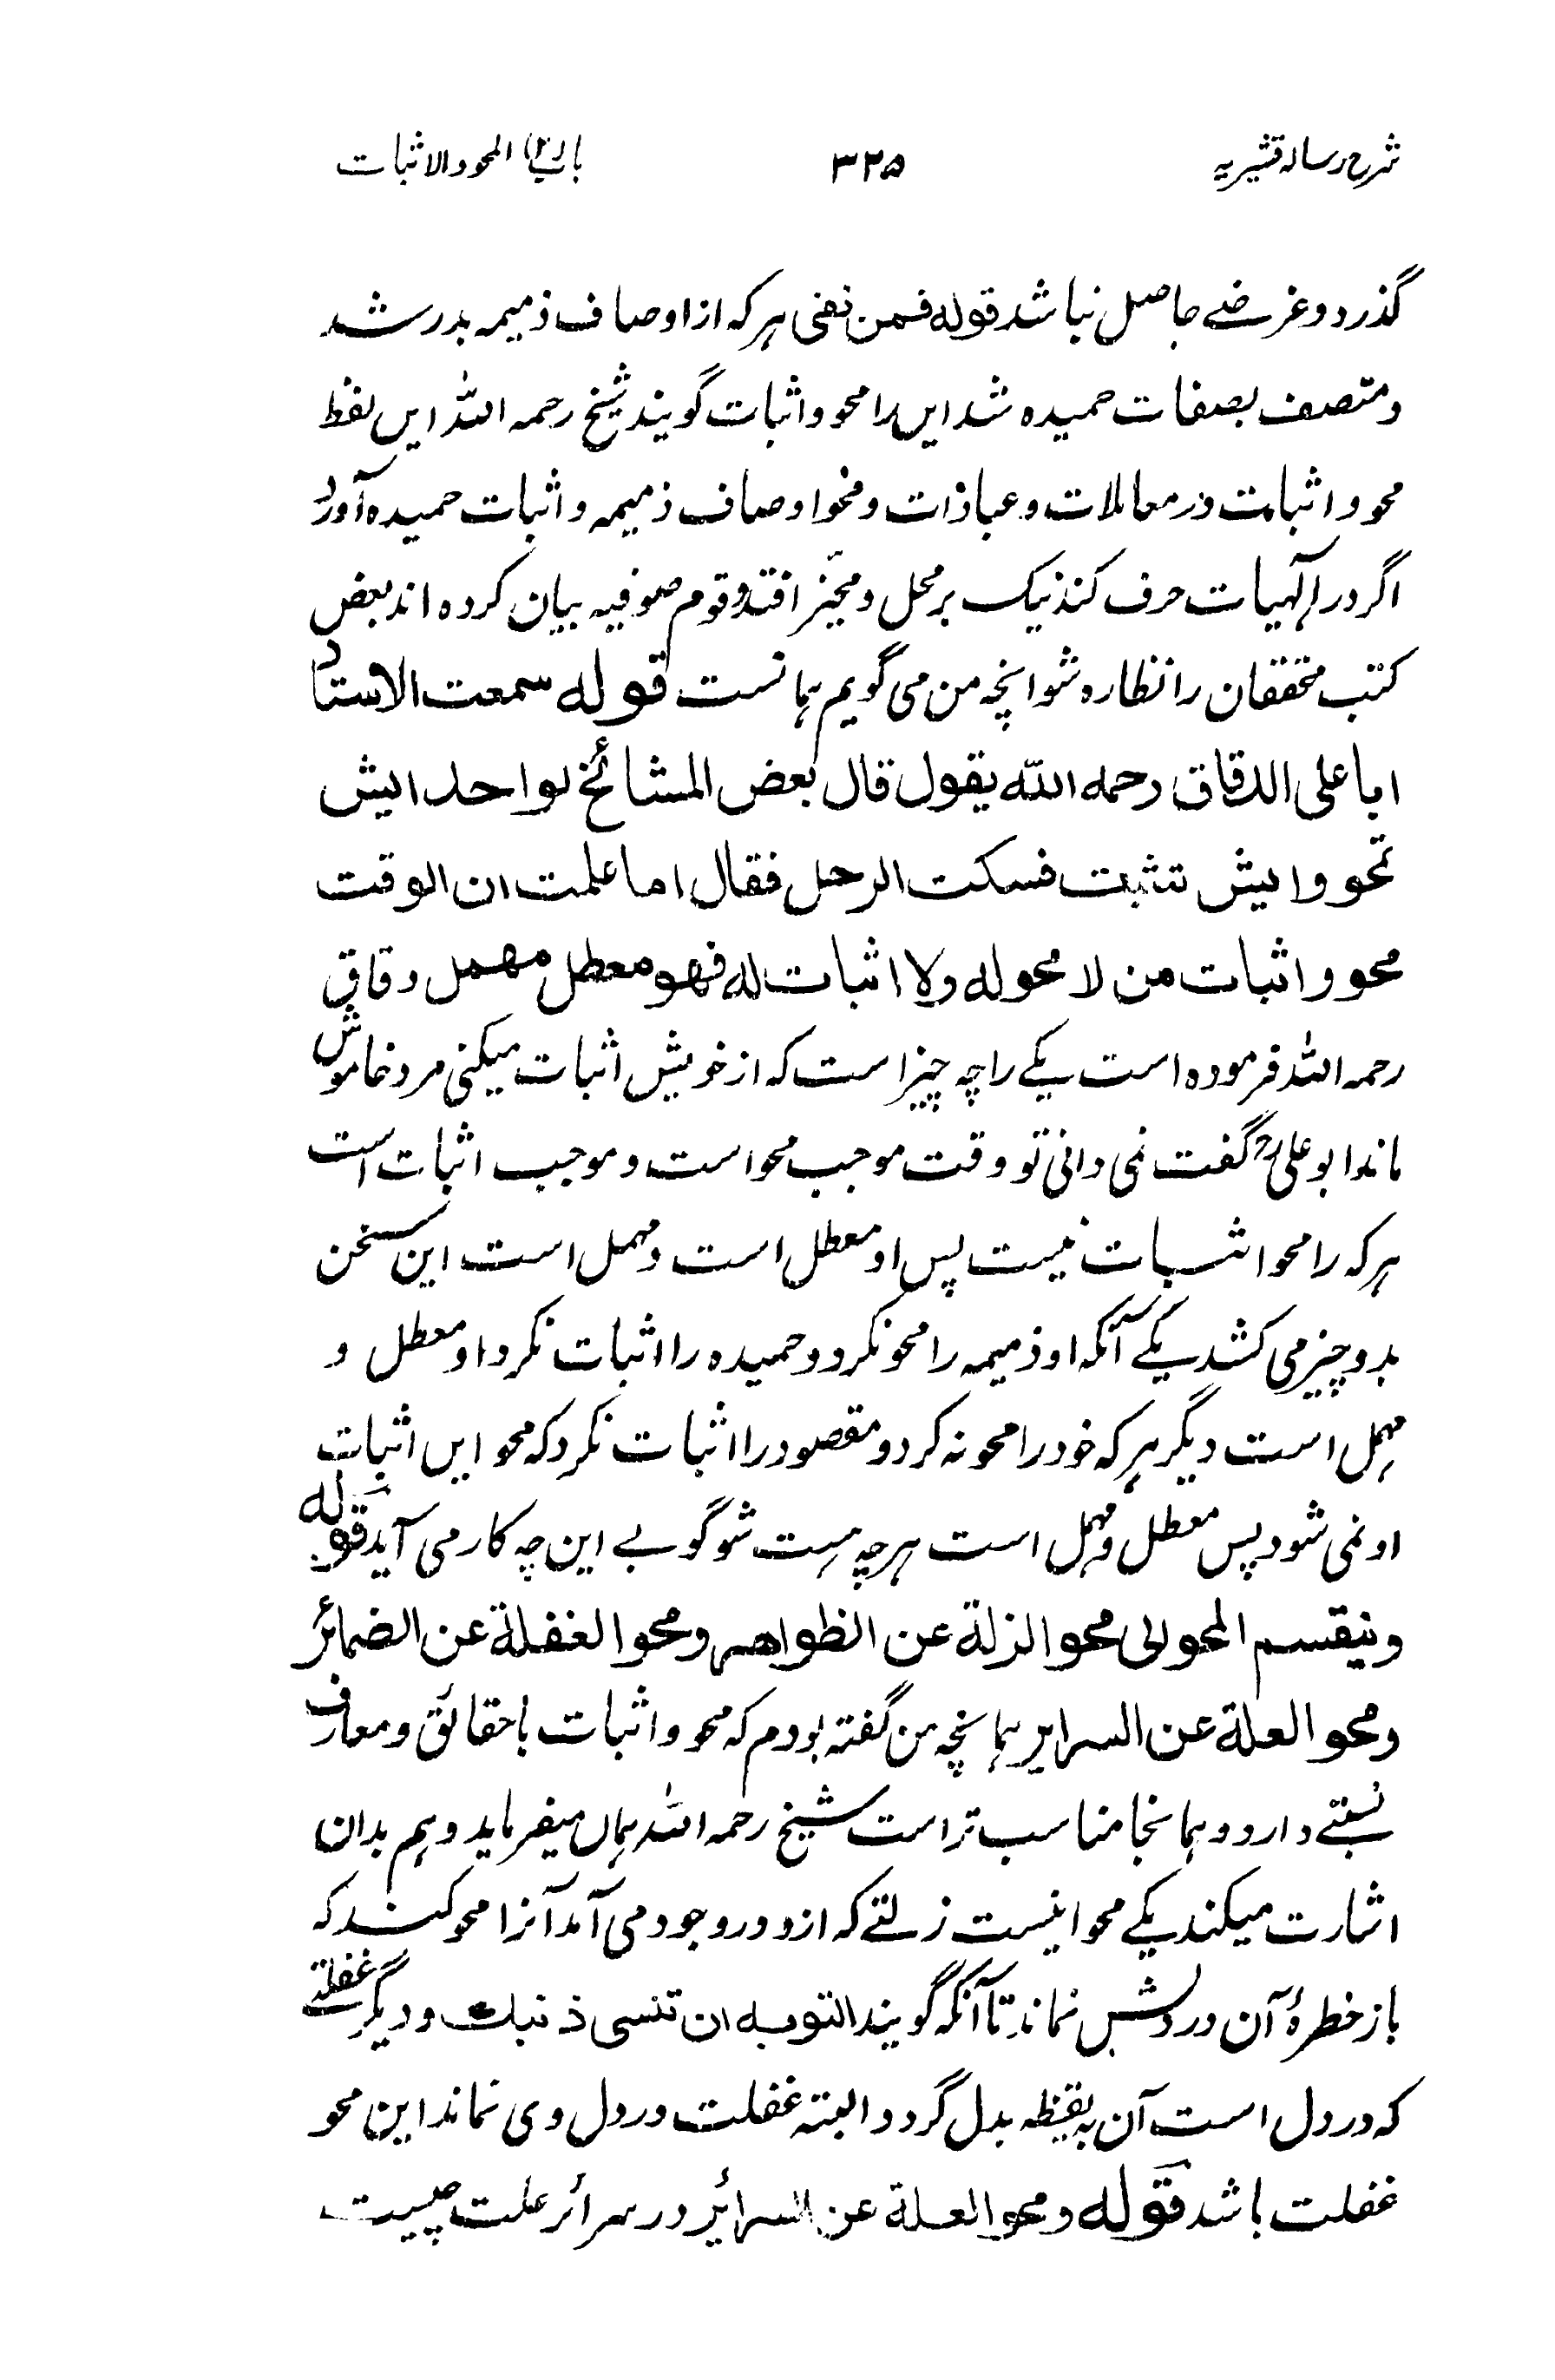 شرح رسالہ قشیریہ ۳۲۵ باب(۲) المحو والاثبات
گذرد و غرضے حاصل نباشد قوله فمن نفی ہر کہ از اوصاف ذمیمہ بدر شد
و متصف بصفات حمیدہ شد ایں را محو و اثبات گویند شیخ رحمہ اللہ ایں لفظ
محو و اثبات در معاملات و عبادات و محو اوصاف ذمیمہ و اثبات حمیدہ آورد
اگر در الٓہیات حرف کند نیک بر محل و محیّز افتد و قوم صوفیہ بیان کردہ اند بعض
کتب محققان را نظارہ شو انچہ من می گویم ہمانست قوله سمعت الاستاد
ابا علی الدقاق رحمه الله یقول قال بعض المشائخ لواحد ایش
تمحو وایش تثبت فسکت الرجل فقال اما علمت ان الوقت
محو و اثبات من لا محو له ولا اثبات له فهو معطل مهمل دقاق
رحمہ اللہ فرمودہ است یکے را چہ چیز است کہ از خویش اثبات میکنی مرد خاموش
ماند ابو علیؒ گفت نمی دانی تو وقت موجب محو است و موجب اثبات است
ہر کہ را محو اثبات نیست پس او معطل است و مہمل است این سخن
بدو چیز می کشد یکے آنکہ او ذمیمہ را محو نکرد و حمیدہ را اثبات نکرد او معطل و
مہمل است دیگر ہر کہ خود را محو نہ کرد و مقصود را اثبات نکرد کہ محو ایں اثبات
او نمی شود پس معطل و مہمل است ہرچہ ہست شو گو بے این چہ کار می آید قوله
وینقسم المحو الی محو الزلة عن الظواهر ومحو الغفلة عن الضمائر
ومحو العلة عن السرایر ہمانچہ من گفتہ بودم کہ محو و اثبات باحقائق و معارف
نسبتے دارد و ہمانجا مناسب تر است شیخ رحمہ اللہ ہماں میفرماید و ہم بدان
اشارت میکند یکے محو اینست زلتے کہ ازو در وجود می آمد آنرا محو کند کہ
باز خطرۂ آن در دلش نماند تا آنکہ گویند التوبه ان تنسی ذنبك و دیگر غفلتے
کہ در دل است آن بہ یقیظہ بدل گردد البتہ غفلت در دل وی نماند این محو
غفلت باشد قوله ومحو العلة عن السرائر در سرائر علت چیست